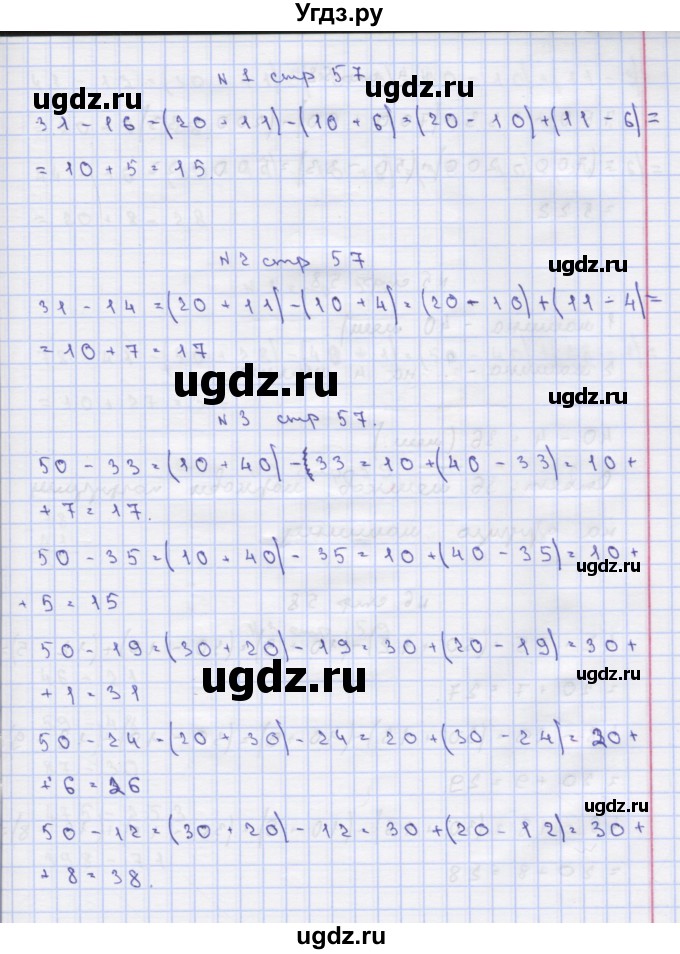 Угдз.ру
N 1 стр 57
ugdz.ru
31 - 16 = (20 + 11) - (10 + 6) = (20 - 10) + (11 - 6) =
ugdz.ru
= 10 + 5 = 15.
N 2 стр 57
ugdz.ru
31 - 14 = (20 + 11) - (10 + 4) = (20 - 10) + (11 - 4) =
= 10 + 7 = 17
ugdz.ru
N 3 стр 57.
50 - 33 = (10 + 40) - (33 = 10 + (40 - 33) = 10 +
+ 7 = 17.
50 - 35 = (10 + 40) - 35 = 10 + (40 - 35) = 10 +
ugdz.ru
+ 5 = 15
50 - 19 = (30 + 20) - 19 = 30 + (20 - 19) = 30 +
ugdz.ru
ugdz.ru
+ 1 = 31
50 - 24 = (20 + 30) - 24 = 20 + (30 - 24) = 20 +
+ 6 = 26
ugdz.ru
50 - 12 = (30 + 20) - 12 = 30 + (20 - 12) = 30 +
ugdz.ru
+ 8 = 38.
ugdz.ru